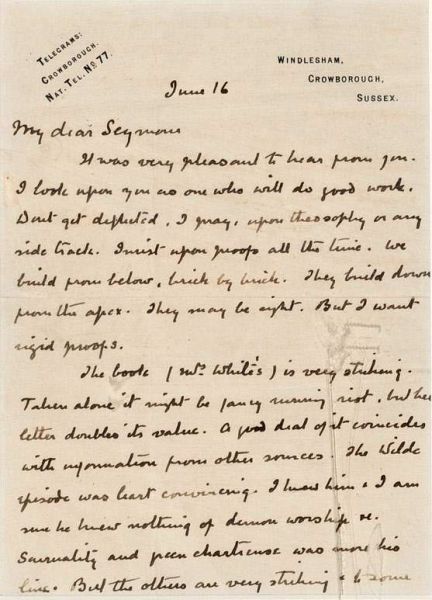 TELEGRAMS:
CROWBOROUGH.
NAT. TEL. No. 77.
WINDLESHAM,
CROWBOROUGH,
SUSSEX.
June 16
My dear Seymour
It was very pleasant to hear from you.
I look upon you as one who will do good work.
Dont get deflected, I pray, upon theosophy or any
side track. Insist upon proofs all the time. We
build from below, brick by brick. They build down
from the apex. They may be right. But I want
rigid proofs.
The book (Mrs White's) is very striking.
Taken alone it might be fancy running riot, but her
letter doubles its value. A good deal of it coincides
with information from other sources. The Wilde
episode was least convincing. I knew him & I am
sure he knew nothing of demon worship &c.
Sensuality and green chartreuse was more his
line. But the others are very striking & to some